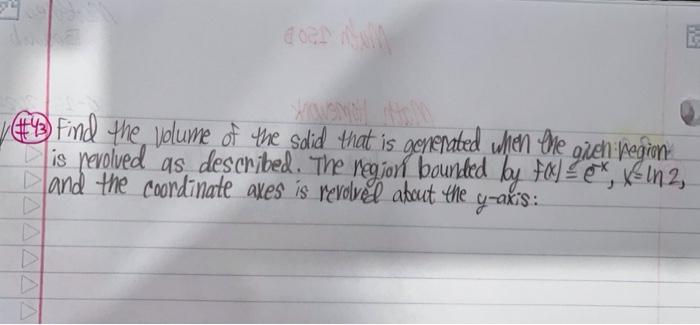 Math 250B
Math Homework
#43 Find the volume of the solid that is generated when the given region
is revolved as described. The region bounded by f(x) = e⁻ˣ, x = ln 2,
and the coordinate axes is revolved about the y-axis: